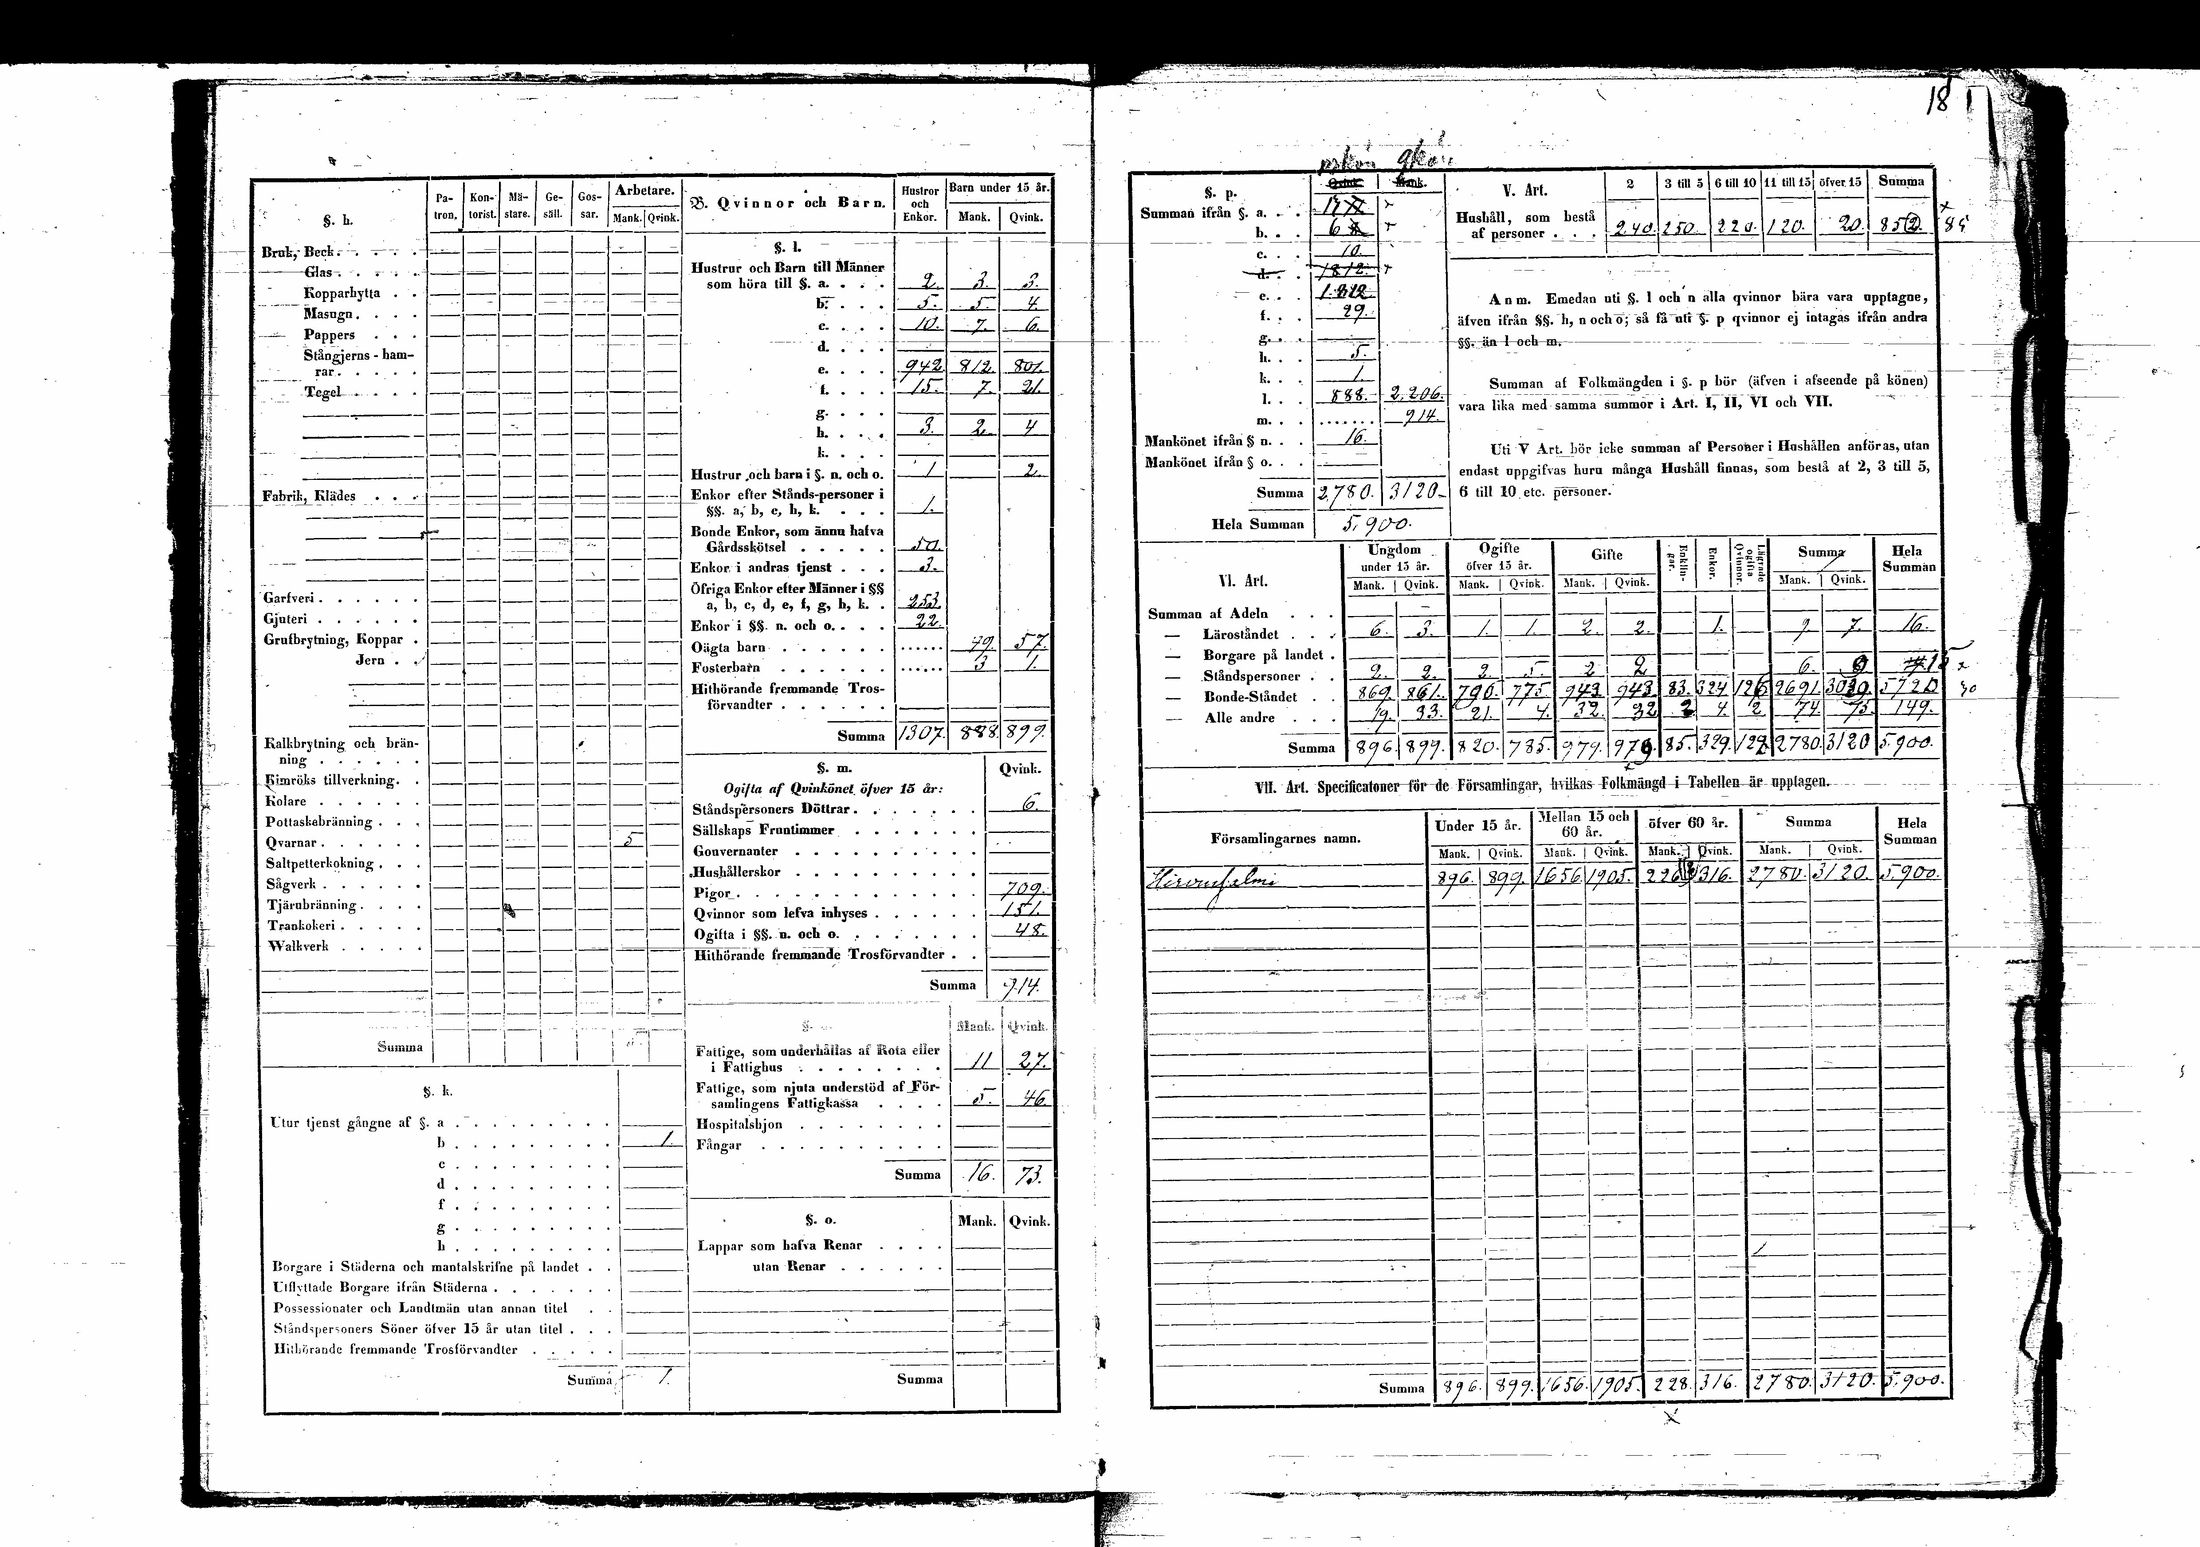 18
§. h.
Pa-tron. Kon-torist. Mä-stare. Ge-säll. Gos-sar. Arbetare. Mank. Qvink.
Bruk, Beck
Glas
Kopparhytta
Masugn
Pappers
Stångjerns-ham-
rar
Tegel
Fabrik, Klädes
Garfveri
Gjuteri
Grufbrytning, Koppar
Jern
Kalkbrytning och brän-
ning
Kimröks tillverkning
Kolare
Pottaskebränning
Qvarnar 5
Saltpetterkokning
Sågverk
Tjärubränning
Trankokeri
Walkverk
Summa 5
§. k.
Utur tjenst gångne af §. a
b 1.
c
d
f
g
h
Borgare i Städerna och mantalskrifne på landet
Utflyttade Borgare ifrån Städerna
Possessionater och Landtmän utan annan titel
Ståndspersoners Söner öfver 15 år utan titel
Hithörande fremmande Trosförvandter
Summa 1.
B. Qvinnor och Barn. Hustror och Enkor. Barn under 15 år. Mank. Qvink.
§. l.
Hustrur och Barn till Männer
som höra till §. a. 2. 3. 3.
b. 5. 5. 4.
c. 10. 7. 6.
d.
e. 942 812. 801.
f. 15. 7. 21.
g.
h. 3. 2. 4
k.
Hustrur och barn i §. n. och o. 1 2.
Enkor efter Stånds-personer i
§§. a, b, c, h, k. 1.
Bonde Enkor, som ännu hafva
Gårdsskötsel 50.
Enkor i andras tjenst 3.
Öfriga Enkor efter Männer i §§
a, b, c, d, e, f, g, h, k. 253
Enkor i §§. n. och o. 22.
Oägta barn 49. 57.
Fosterbarn 3 1.
Hithörande fremmande Tros-
förvandter
Summa 1307. 888. 899.
§. m. Qvink.
Ogifta af Qvinkönet öfver 15 år:
Ståndspersoners Döttrar 6.
Sällskaps Fruntimmer
Gouvernanter
Hushållerskor
Pigor 709.
Qvinnor som lefva inhyses 151.
Ogifta i §§. n. och o. 48.
Hithörande fremmande Trosförvandter
Summa 914.
Mank. Qvink.
Fattige, som underhållas af Rota eller
i Fattighus 11 27.
Fattige, som njuta understöd af För-
samlingens Fattigkassa 5. 46.
Hospitalshjon
Fångar
Summa 16. 73.
§. o. Mank. Qvink.
Lappar som hafva Renar
utan Renar
Summa
§. p. Qvink. Mank.
Summan ifrån §. a.
b. 6
c. 10.
d. 1812.
e. 1.812.
f. 29.
g.
h. 5.
k. 1.
l. 888. 2,206.
m. 914.
Mankönet ifrån § n. 16.
Mankönet ifrån § o.
Summa 2,780. 3120
Hela Summan 5,900.
V. Art. 2 3 till 5 6 till 10 11 till 15 öfver 15 Summa
Hushåll, som bestå
af personer 240. 250. 220. 120. 20. 852. 85
Anm. Emedan uti §. l och n alla qvinnor böra vara upptagne,
äfven ifrån §§. h, n och o; så få uti §. p qvinnor ej intagas ifrån andra
§§. än l och m.
Summan af Folkmängden i §. p bör (äfven i afseende på könen)
vara lika med samma summor i Art. I, II, VI och VII.
Uti V Art. bör icke summan af Personer i Hushållen anföras, utan
endast uppgifvas huru många Hushåll finnas, som bestå af 2, 3 till 5,
6 till 10 etc. personer.
VI. Art. Ungdom under 15 år. Mank. Qvink. Ogifte öfver 15 år. Mank. Qvink. Gifte Mank. Qvink. Enklin-gar. Enkor. Lägrade ogifta Qvinnor. Summa Mank. Qvink. Hela Summan
Summan af Adeln
— Läroståndet 6. 3. 1. 1. 2. 2. 1. 9. 7. 16.
— Borgare på landet
— Ståndspersoner 2. 2. 2. 5. 2 2 6. 9 15
— Bonde-Ståndet 869. 861. 796. 775. 943. 943 83. 324 126 2691. 3039. 5720 30
— Alle andre 19. 33. 21. 4. 32. 32 2 4. 2. 74. 75. 149.
Summa 896. 899. 820. 785. 979. 979. 85. 329. 128 2780. 3120 5.900.
VII. Art. Specificatoner för de Församlingar, hvilkas Folkmängd i Tabellen är upptagen.
Församlingarnes namn. Under 15 år. Mank. Qvink. Mellan 15 och 60 år. Mank. Qvink. öfver 60 år. Mank. Qvink. Summa Mank. Qvink. Hela Summan
Hirvensalmi 896. 899. 1656. 1905. 228 316. 2780. 3120. 5.900.
Summa 896. 899. 1656. 1905. 228. 316. 2780. 3120. 5.900.